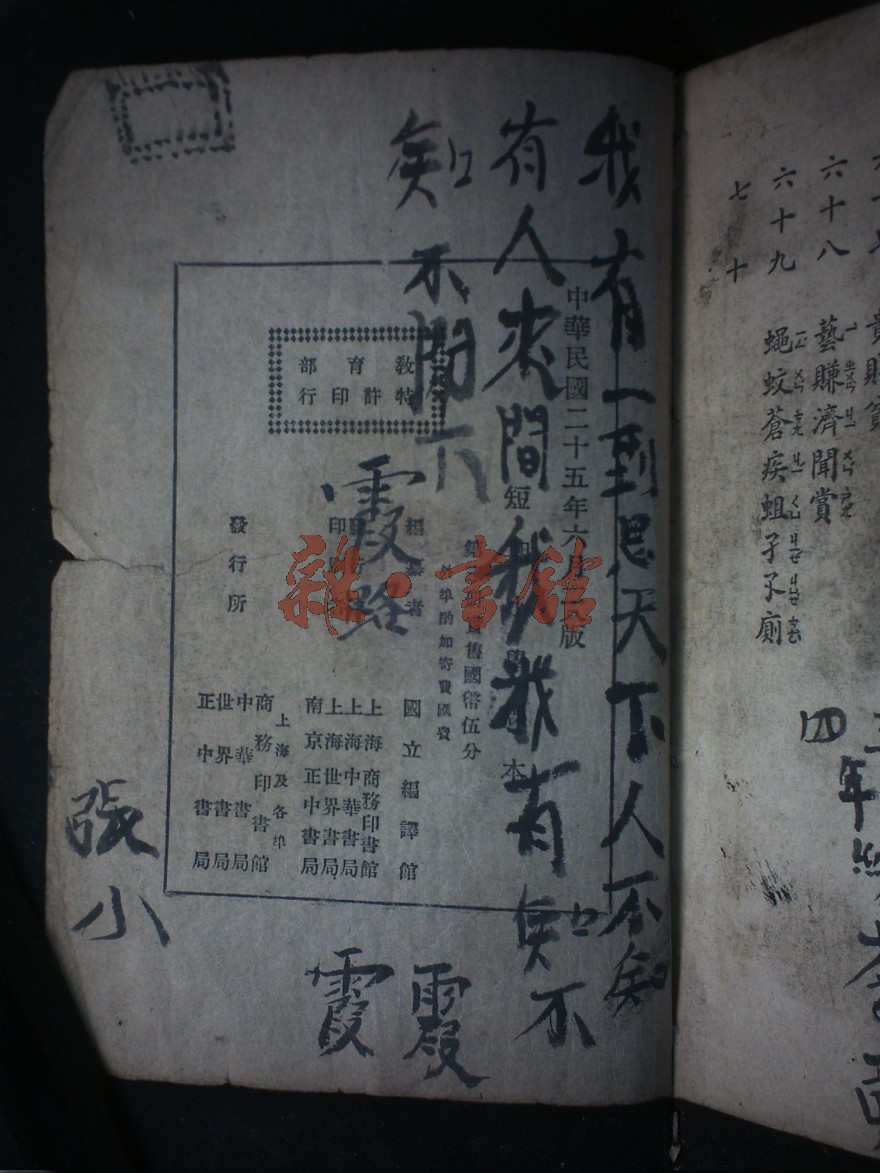 六十八
藝賺濟聞賞
六十九
蠅蚊蒼疾蛆孑孓廁
七十
四年
我有一到思天下人不知
有人來間我我有知不
知不
霞
霞
霞
張小
中華民國二十五年六月
版
短
本
售國幣伍分
外埠酌加寄費匯費
編
者
國立編譯館
印
上海商務印書館
上海中華書局
上海世界書局
南京正中書局
發行所
上海及各埠
商務印書館
中華書局
世界書局
正中書局
教育部
特許印行
雜·書館